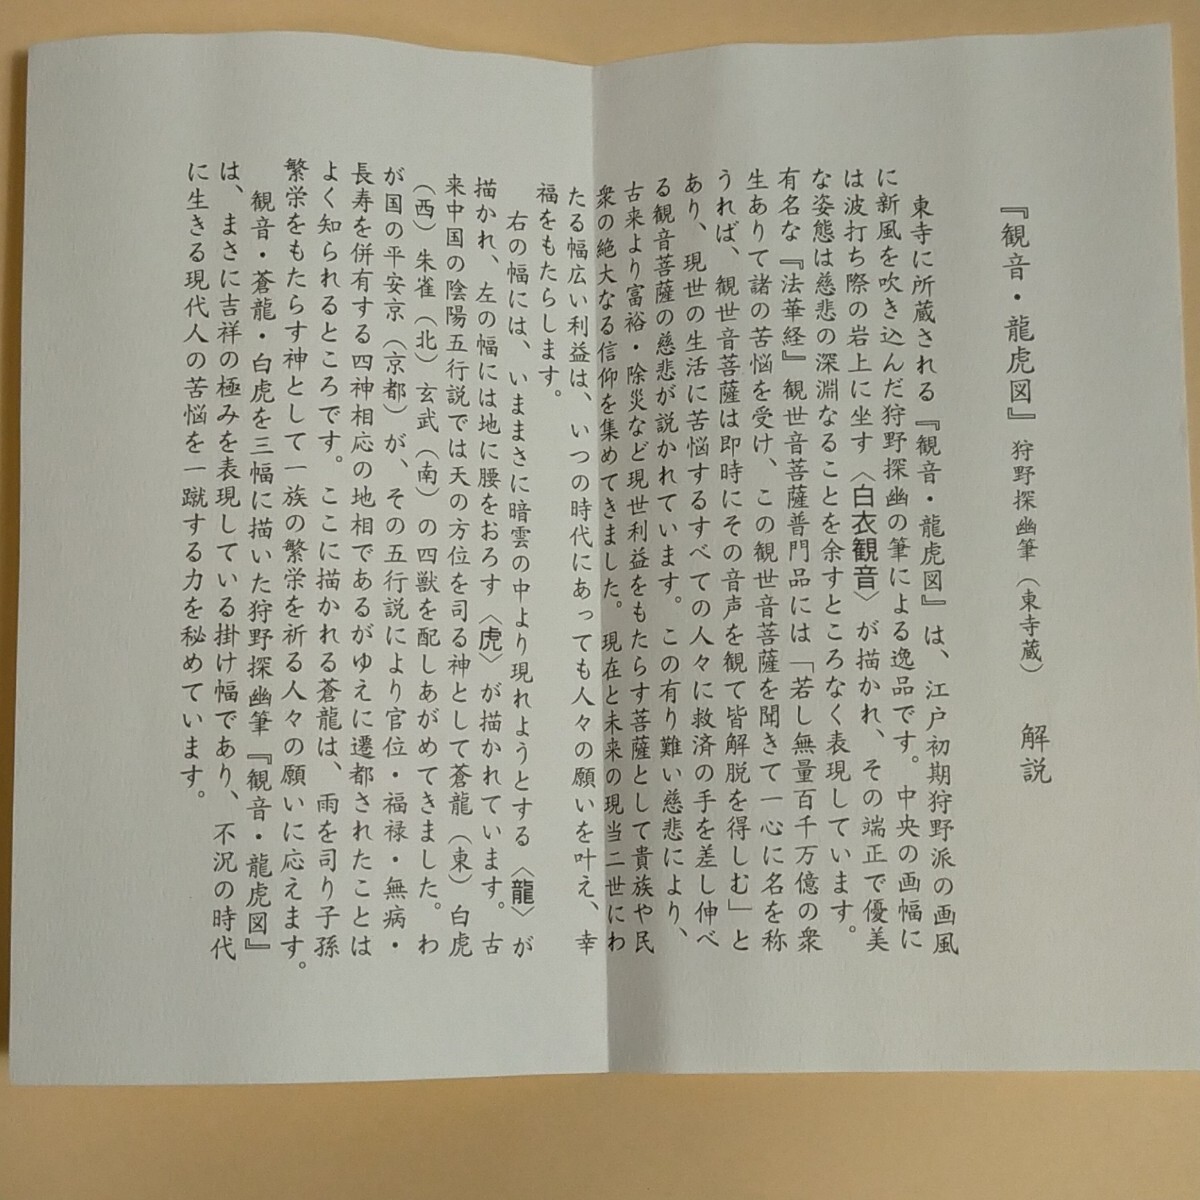 『観音・龍虎図』 狩野探幽筆（東寺蔵） 解説
東寺に所蔵される『観音・龍虎図』は、江戸初期狩野派の画風
に新風を吹き込んだ狩野探幽の筆による逸品です。中央の画幅に
は波打ち際の岩上に坐す〈白衣観音〉が描かれ、その端正で優美
な姿態は慈悲の深淵なることを余すところなく表現しています。
有名な『法華経』観世音菩薩普門品には「若し無量百千万億の衆
生ありて諸の苦悩を受け、この観世音菩薩を聞きて一心に名を称
うれば、観世音菩薩は即時にその音声を観て皆解脱を得しむ」と
あり、現世の生活に苦悩するすべての人々に救済の手を差し伸べ
る観音菩薩の慈悲が説かれています。この有り難い慈悲により、
古来より富裕・除災など現世利益をもたらす菩薩として貴族や民
衆の絶大なる信仰を集めてきました。現在と未来の現当二世にわ
たる幅広い利益は、いつの時代にあっても人々の願いを叶え、幸
福をもたらします。
右の幅には、いままさに暗雲の中より現れようとする〈龍〉が
描かれ、左の幅には地に腰をおろす〈虎〉が描かれています。古
来中国の陰陽五行説では天の方位を司る神として蒼龍（東）白虎
（西）朱雀（北）玄武（南）の四獣を配しあがめてきました。わ
が国の平安京（京都）が、その五行説により官位・福禄・無病・
長寿を併有する四神相応の地相であるがゆえに遷都されたことは
よく知られるところです。ここに描かれる蒼龍は、雨を司り子孫
繁栄をもたらす神として一族の繁栄を祈る人々の願いに応えます。
観音・蒼龍・白虎を三幅に描いた狩野探幽筆『観音・龍虎図』
は、まさに吉祥の極みを表現している掛け幅であり、不況の時代
に生きる現代人の苦悩を一蹴する力を秘めています。